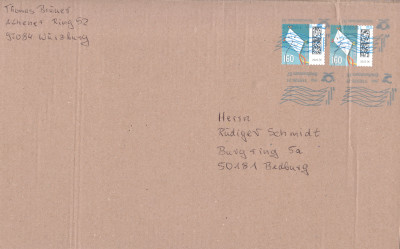 Thomas Bräuer
Aachener Ring 52
97084 Würzburg
160
160
Herrn
Rüdiger Schmidt
Burgring 5a
50181 Bedburg